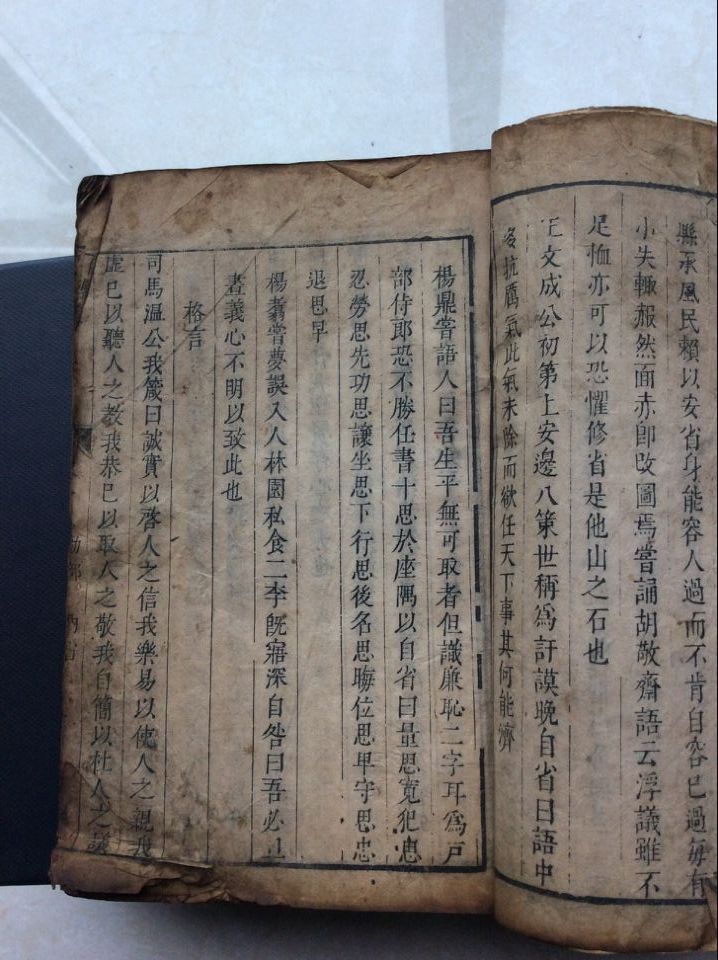 縣承風民賴以安省身能容人過而不肯自容已過每有
小失輙赧然面赤卽改圖焉嘗誦胡敬齋語云浮議雖不
足恤亦可以恐懼修省是他山之石也
王文成公初第上安邊八策世稱爲訏謨晚自省曰語中
多抗厲氣此氣未除而欲任天下事其何能濟
楊鼎嘗語人曰吾生平無可取者但識廉恥二字耳爲戶
部侍郎恐不勝任書十思於座隅以自省曰量思寛犯思
忍勞思先功思讓坐思下行思後名思晦位思卑守思忠
退思早
楊翥嘗夢誤入人林園私食二李旣寤深自咎曰吾必旦
晝義心不明以致此也
格言
司馬温公我箴曰誠實以啓人之信我樂易以使人之親我
虛已以聽人之教我恭已以取人之敬我自簡以杜人之議